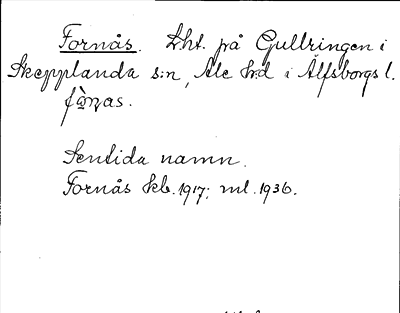 Fornås. Lht. på Gullringen i
Skepplanda s:n, Ale h:d i Älfsborgs l.
Sentida namn.
Fornås kb. 1917; ml. 1936.